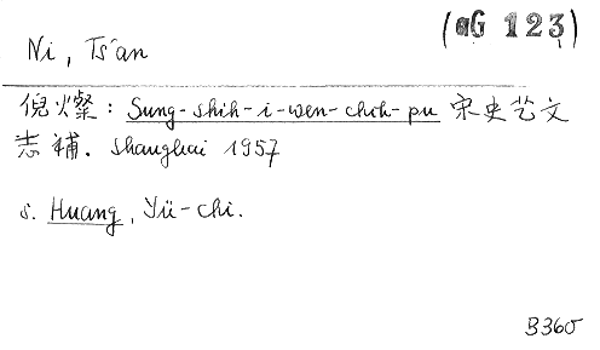 (aG 123)
Ni, Ts'an
倪燦: Sung-shih-i-wen-chih-pu 宋史艺文
志補. Shanghai 1957
s. Huang, Yü-chi.
B365